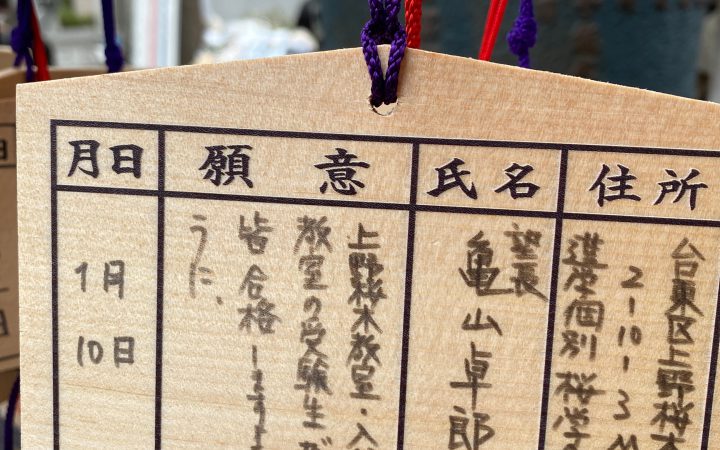 月日
願意
氏名
住所
1月
10日
上野桜木教室・入
教室の受験生が
皆合格しますよ
うに、
亀山卓郎
台東区上野桜木
2-10-3
進学個別桜学